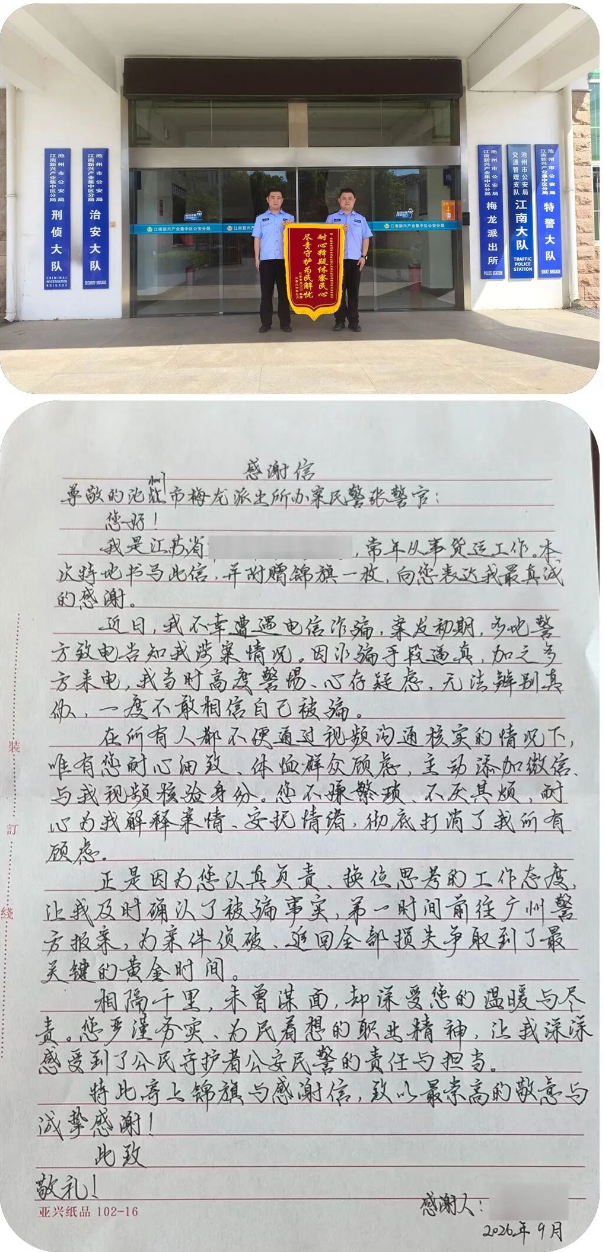 池州市公安局
江南新兴产业集中区分局
刑侦大队
池州市公安局
江南新兴产业集中区分局
治安大队
江南新兴产业集中区公安分局
耐心释疑怀察民心
尽责守护为民解忧
池州市公安局
江南新兴产业集中区分局
梅龙派出所
POLICE STATION
池州市公安局
交通管理支队
江南大队
TRAFFIC
POLICE
STATION
池州市公安局
江南新兴产业集中区分局
特警大队
感谢信
尊敬的池州市梅龙派出所办案民警张警官:
您好!
我是江苏省 ,常年从事货运工作。本
次特地书写此信,并附赠锦旗一枚,向您表达我最真诚
的感谢。
近日,我不幸遭遇电信诈骗,案发初期,多地警
方致电告知我涉案情况。因诈骗手段逼真,加之多
方来电,我当时高度警惕、心存疑虑,无法辨别真
伪,一度不敢相信自己被骗。
在所有人都不便通过视频沟通核实的情况下,
唯有您耐心细致、体恤群众顾虑,主动添加微信、
与我视频核验身份。您不嫌繁琐、不厌其烦,耐
心为我解释案情、安抚情绪,彻底打消了我所有
顾虑。
正是因为您认真负责、换位思考的工作态度,
让我及时确认了被骗事实,第一时间前往广州警
方报案,为案件侦破、追回全部损失争取到了最
关键的黄金时间。
相隔千里,未曾谋面,却深受您的温暖与尽
责。您严谨务实、为民着想的职业精神,让我深深
感受到了公民守护者公安民警的责任与担当。
特此寄上锦旗与感谢信,致以最崇高的敬意与
诚挚感谢!
此致
敬礼!
感谢人:
2026年9月
装
订
线
亚兴纸品 102-16